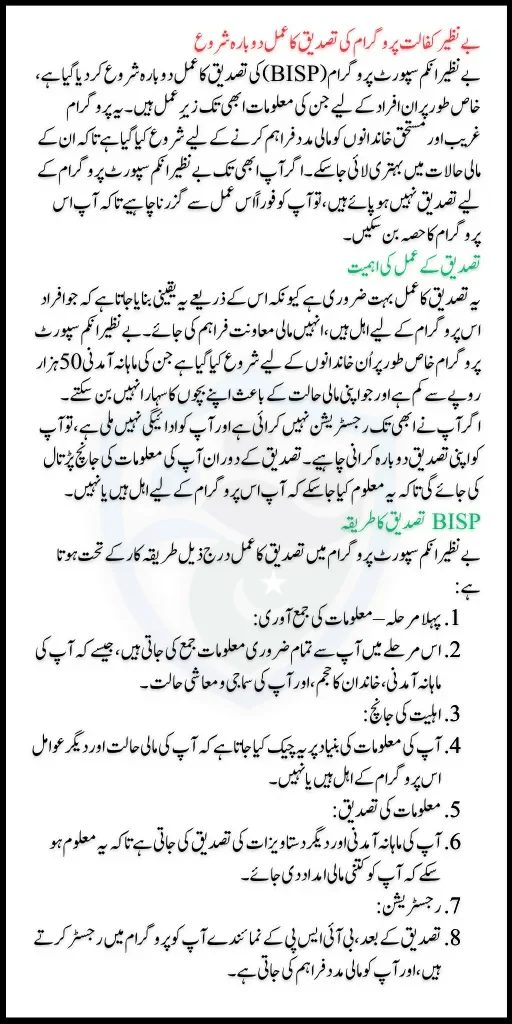 بے نظیر کفالت پروگرام کی تصدیق کا عمل دوبارہ شروع
بے نظیر انکم سپورٹ پروگرام (BISP) کی تصدیق کا عمل دوبارہ شروع کر دیا گیا ہے،
خاص طور پر ان افراد کے لیے جن کی معلومات ابھی تک زیر عمل ہیں۔ یہ پروگرام
غریب اور مستحق خاندانوں کو مالی مدد فراہم کرنے کے لیے شروع کیا گیا ہے تاکہ ان کے
مالی حالات میں بہتری لائی جا سکے۔ اگر آپ ابھی تک بے نظیر انکم سپورٹ پروگرام کے
لیے تصدیق نہیں ہو پائے ہیں، تو آپ کو فوراً اس عمل سے گزرنا چاہیے تاکہ آپ اس
پروگرام کا حصہ بن سکیں۔
تصدیق کے عمل کی اہمیت
یہ تصدیق کا عمل بہت ضروری ہے کیونکہ اس کے ذریعے یہ یقینی بنایا جاتا ہے کہ جو افراد
اس پروگرام کے لیے اہل ہیں، انہیں مالی معاونت فراہم کی جائے۔ بے نظیر انکم سپورٹ
پروگرام خاص طور پر اُن خاندانوں کے لیے شروع کیا گیا ہے جن کی ماہانہ آمدنی 50 ہزار
روپے سے کم ہے اور جو اپنی مالی حالت کے باعث اپنے بچوں کا سہارا نہیں بن سکتے۔
اگر آپ نے ابھی تک رجسٹریشن نہیں کرائی ہے اور آپ کو ادائیگی نہیں ملی ہے، تو آپ
کو اپنی تصدیق دوبارہ کرانی چاہیے۔ تصدیق کے دوران آپ کی معلومات کی جانچ پڑتال
کی جائے گی تاکہ یہ معلوم کیا جا سکے کہ آپ اس پروگرام کے لیے اہل ہیں یا نہیں۔
BISP تصدیق کا طریقہ
بے نظیر انکم سپورٹ پروگرام میں تصدیق کا عمل درج ذیل طریقہ کار کے تحت ہوتا
ہے:
1. پہلا مرحلہ – معلومات کی جمع آوری:
2. اس مرحلے میں آپ سے تمام ضروری معلومات جمع کی جاتی ہیں، جیسے کہ آپ کی
ماہانہ آمدنی، خاندان کا حجم، اور آپ کی سماجی و معاشی حالت۔
3. اہلیت کی جانچ:
4. آپ کی معلومات کی بنیاد پر یہ چیک کیا جاتا ہے کہ آپ کی مالی حالت اور دیگر عوامل
اس پروگرام کے اہل ہیں یا نہیں۔
5. معلومات کی تصدیق:
6. آپ کی ماہانہ آمدنی اور دیگر دستاویزات کی تصدیق کی جاتی ہے تاکہ یہ معلوم ہو
سکے کہ آپ کو کتنی مالی امداد دی جائے۔
7. رجسٹریشن:
8. تصدیق کے بعد، بی آئی ایس پی کے نمائندے آپ کو پروگرام میں رجسٹر کرتے
ہیں، اور آپ کو مالی مدد فراہم کی جاتی ہے۔